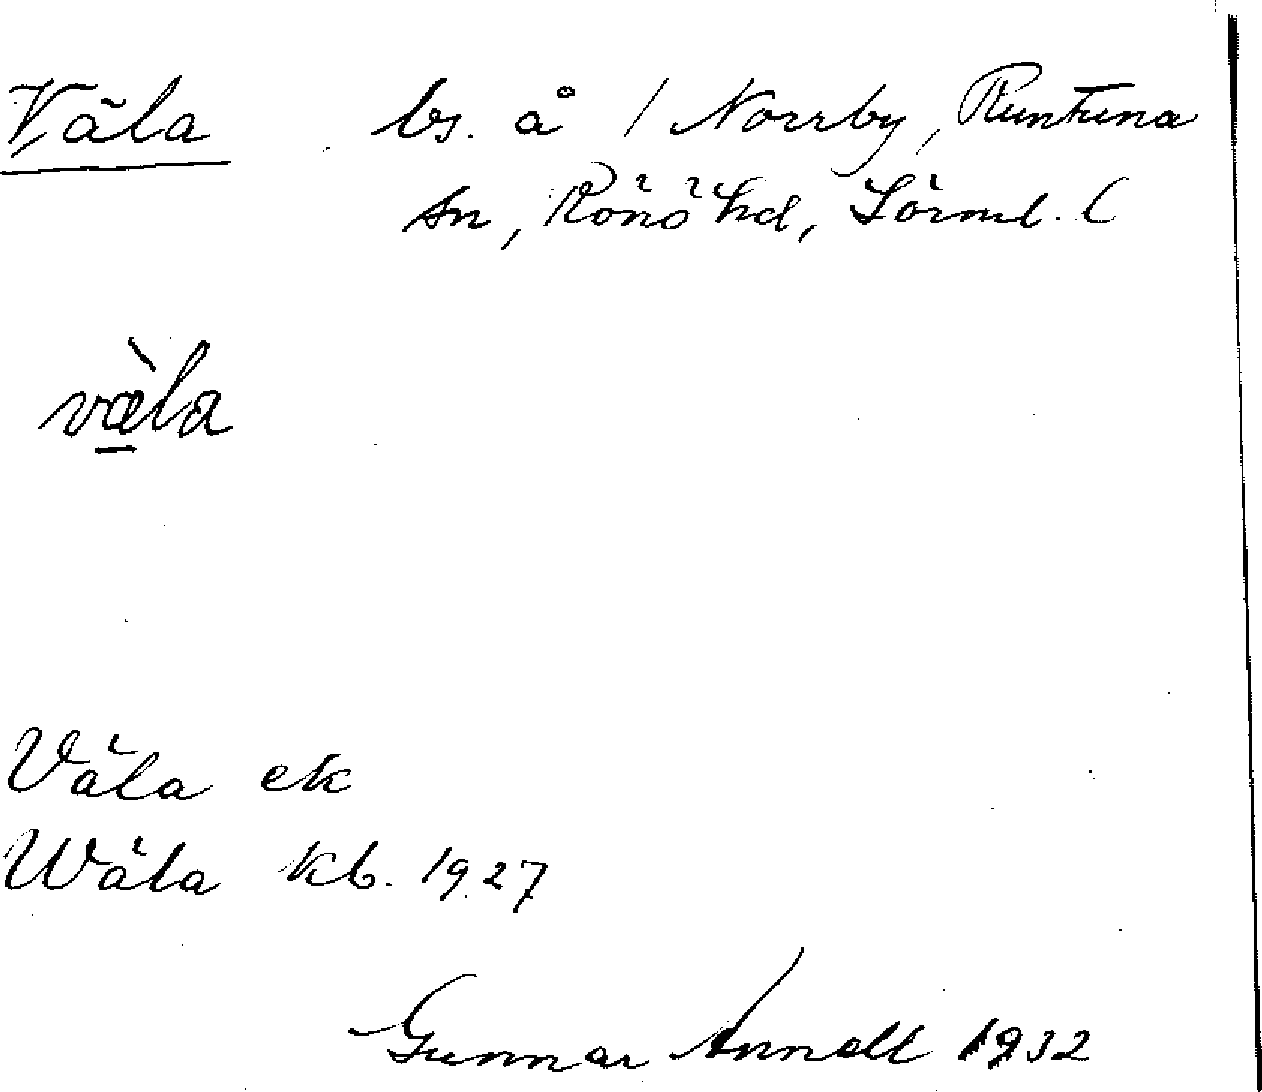 Väla bs. å 1 Norrby, Runtuna
sn, Rönö hd, Sörml. l
vœ̀la
Väla ek
Wäla kb. 1927
Gunnar Annell 1932